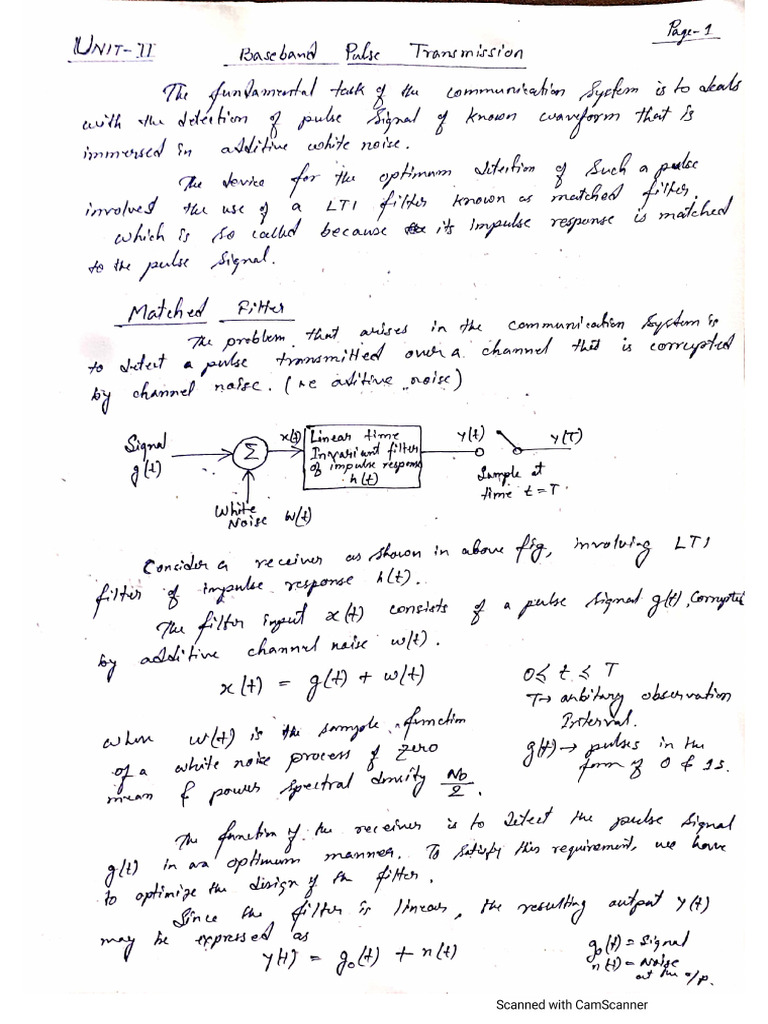 Page-1
UNIT-II
Baseband Pulse Transmission
The fundamental task of the communication System is to deals
with the detection of pulse signal of known waveform that is
immersed in additive white noise.
The device for the optimum detection of such a pulse
involved the use of a LTI filter known as matched filter,
which is so called because its impulse response is matched
to the pulse signal.
Matched Filter
The problem that arises in the communication system is
to detect a pulse transmitted over a channel that is corrupted
by channel noise. (ie aditive noise)
Signal
g(t)
Σ
White
Noise W(t)
x(t)
Linear time
Invariant filter
of impulse response
h(t)
y(t)
y(T)
Sample at
time t = T.
Consider a receiver as shown in above fig, involving LTI
filter of impulse response h(t).
The filter input x(t) consists of a pulse signal g(t), corrupted
by additive channel noise w(t).
x(t) = g(t) + w(t)
0 ≤ t ≤ T
T → arbitary observation
Interval.
g(t) → pulses in the
form of 0 & 1s.
where w(t) is the sample function
of a white noise process of zero
mean & power spectral density No/2.
The function of the receiver is to detect the pulse signal
g(t) in an optimum manner. To satisfy this requirement, we have
to optimize the design of the filter.
Since the filter is linear, the resulting output y(t)
may be expressed as
y(t) = go(t) + n(t)
go(t) = Signal
n(t) = Noise
at the o/p.
Scanned with CamScanner